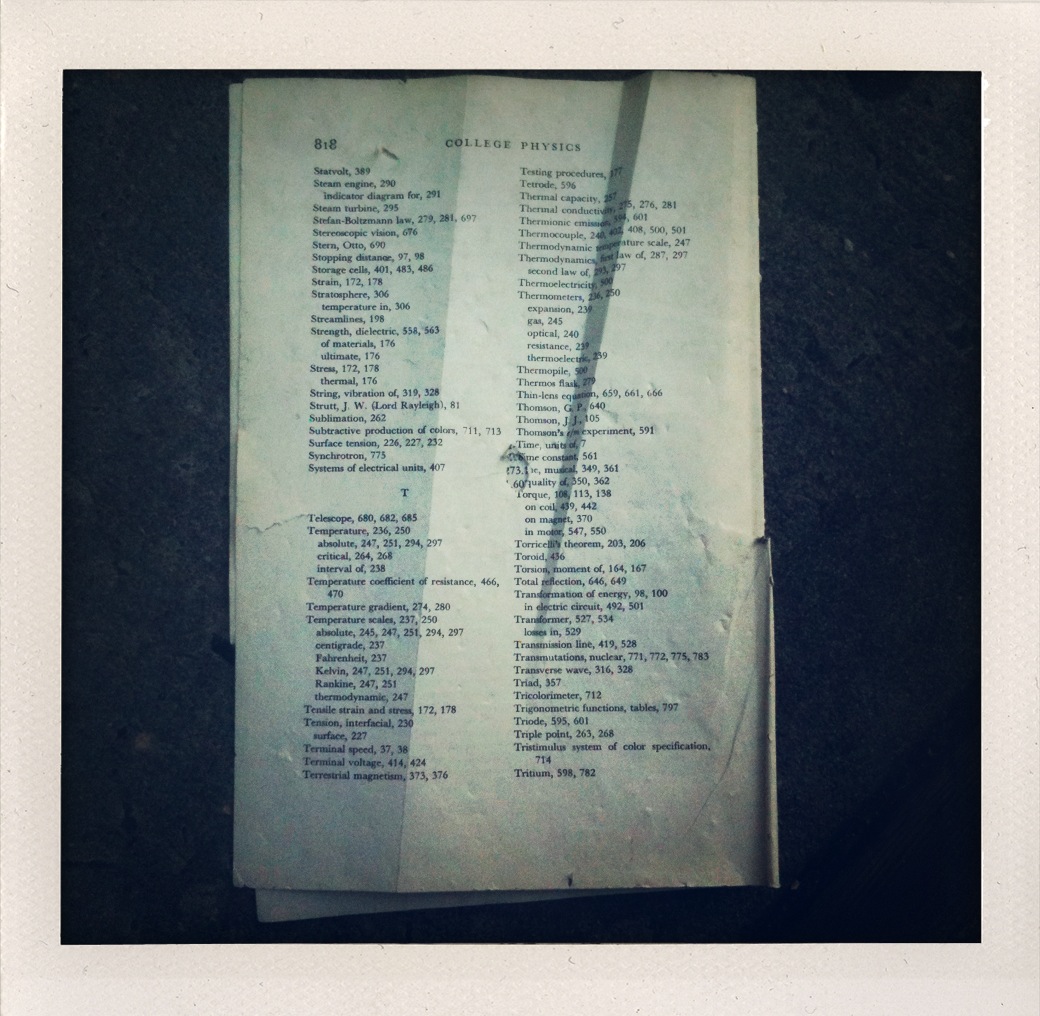 818
COLLEGE PHYSICS
Statvolt, 389
Steam engine, 290
indicator diagram for, 291
Steam turbine, 295
Stefan-Boltzmann law, 279, 281, 697
Stereoscopic vision, 676
Stern, Otto, 690
Stopping distance, 97, 98
Storage cells, 401, 483, 486
Strain, 172, 178
Stratosphere, 306
temperature in, 306
Streamlines, 198
Strength, dielectric, 558, 563
of materials, 176
ultimate, 176
Stress, 172, 178
thermal, 176
String, vibration of, 319, 328
Strutt, J. W. (Lord Rayleigh), 81
Sublimation, 262
Subtractive production of colors, 711, 713
Surface tension, 226, 227, 232
Synchrotron, 775
Systems of electrical units, 407
T
Telescope, 680, 682, 685
Temperature, 236, 250
absolute, 247, 251, 294, 297
critical, 264, 268
interval of, 238
Temperature coefficient of resistance, 466,
470
Temperature gradient, 274, 280
Temperature scales, 237, 250
absolute, 245, 247, 251, 294, 297
centigrade, 237
Fahrenheit, 237
Kelvin, 247, 251, 294, 297
Rankine, 247, 251
thermodynamic, 247
Tensile strain and stress, 172, 178
Tension, interfacial, 230
surface, 227
Terminal speed, 37, 38
Terminal voltage, 414, 424
Terrestrial magnetism, 373, 376
Testing procedures, 177
Tetrode, 596
Thermal capacity, 257
Thermal conductivity, 275, 276, 281
Thermionic emission, 594, 601
Thermocouple, 240, 402, 408, 500, 501
Thermodynamic temperature scale, 247
Thermodynamics, first law of, 287, 297
second law of, 293, 297
Thermoelectricity, 500
Thermometers, 236, 250
expansion, 239
gas, 245
optical, 240
resistance, 239
thermoelectric, 239
Thermopile, 500
Thermos flask, 279
Thin-lens equation, 659, 661, 666
Thomson, G. P., 640
Thomson, J. J., 105
Thomson's e/m experiment, 591
Time, units of, 7
me constant, 561
73. ne, musical, 349, 361
.60 quality of, 350, 362
Torque, 108, 113, 138
on coil, 439, 442
on magnet, 370
in motor, 547, 550
Torricelli's theorem, 203, 206
Toroid, 436
Torsion, moment of, 164, 167
Total reflection, 646, 649
Transformation of energy, 98, 100
in electric circuit, 492, 501
Transformer, 527, 534
losses in, 529
Transmission line, 419, 528
Transmutations, nuclear, 771, 772, 775, 783
Transverse wave, 316, 328
Triad, 357
Tricolorimeter, 712
Trigonometric functions, tables, 797
Triode, 595, 601
Triple point, 263, 268
Tristimulus system of color specification,
714
Tritium, 598, 782